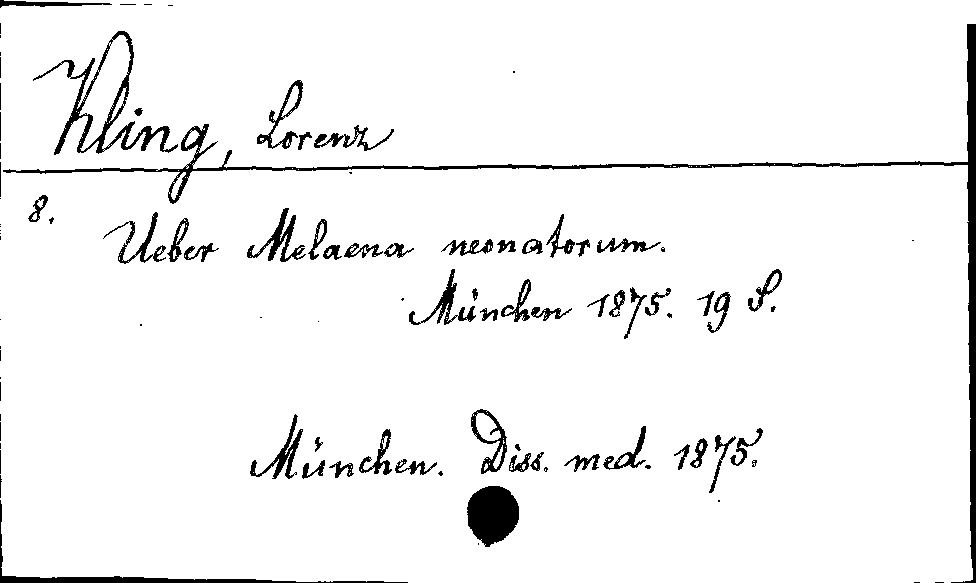 Kling, Lorenz
8.
Ueber Melaena neonatorum.
München 1875. 19 S.
München. Diss. med. 1875.